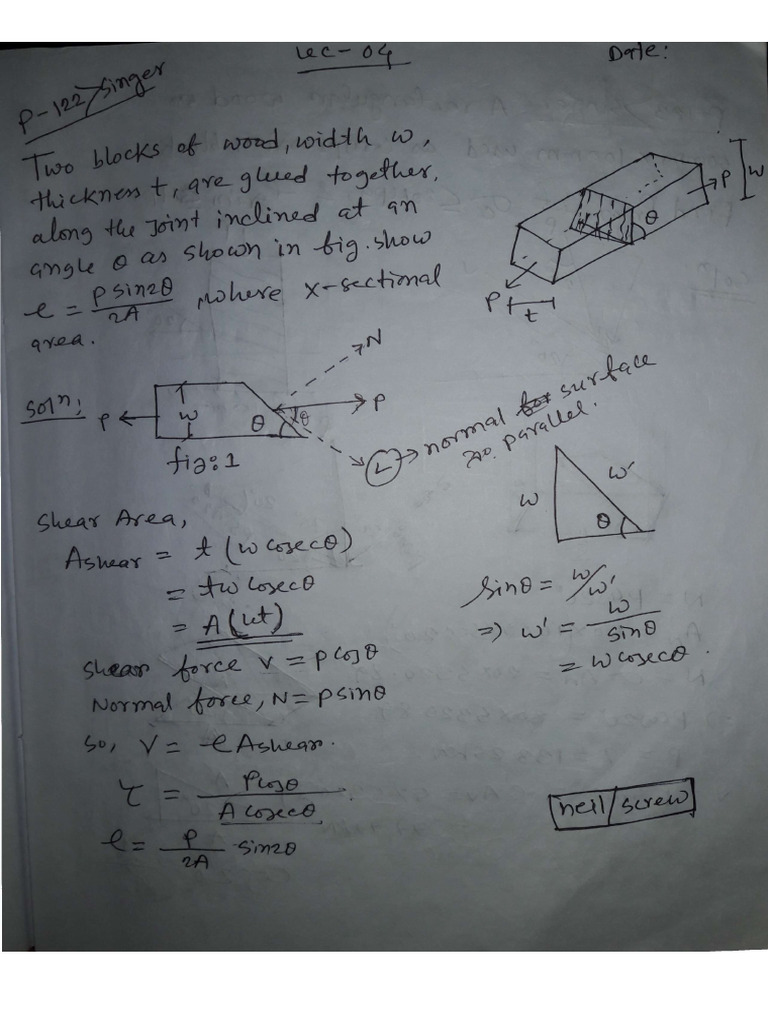 Lec-04
Date:
P-122/Singer
Two blocks of wood, width w,
thickness t, are glued together,
along the Joint inclined at an
angle θ as shown in fig. show
τ = P sin2θ / 2A, where x-sectional
area.
P
w
θ
P
t
Soln:
P
w
θ
θ
P
N
fig:1
L → normal surface
parallel.
w
w'
θ
Shear Area,
Ashear = t (w cosecθ)
= tw cosecθ
= A (wt)
Shear force V = P cosθ
Normal force, N = P sinθ
so, V = τ Ashear.
τ = P cosθ / A cosecθ
τ = P / 2A · sin2θ
Sinθ = w/w'
⇒ w' = w / sinθ
= w cosecθ.
neil/screw